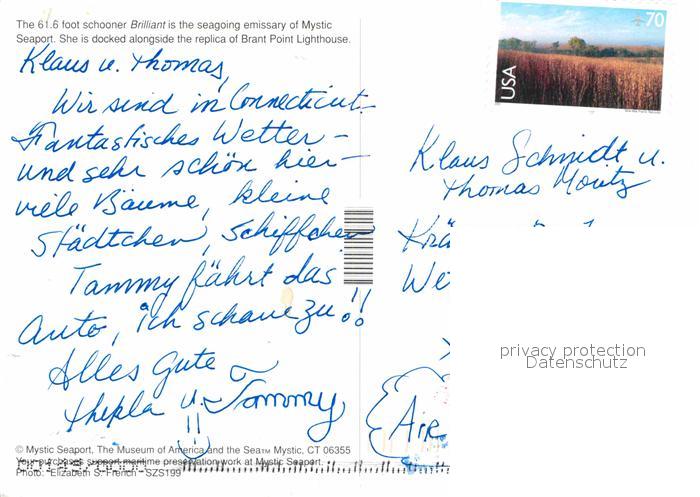 The 61.6 foot schooner Brilliant is the seagoing emissary of Mystic
Seaport. She is docked alongside the replica of Brant Point Lighthouse.
Klaus u. Thomas,
Wir sind in Connecticut –
Fantastisches Wetter –
und sehr schön hier –
viele Bäume, kleine
Städtchen, Schiffchen
Tammy fährt das
Auto, ich schaue zu!!
Alles Gute
Thekla u. Tammy
!!
70
USA
Klaus Schmidt u.
Thomas Moritz
Krä
We
privacy protection
Datenschutz
AIR
© Mystic Seaport, The Museum of America and the Sea™ Mystic, CT 06355
Your purchase support maritime preservation work at Mystic Seaport.
Photo: Elizabeth S. French - SZS199